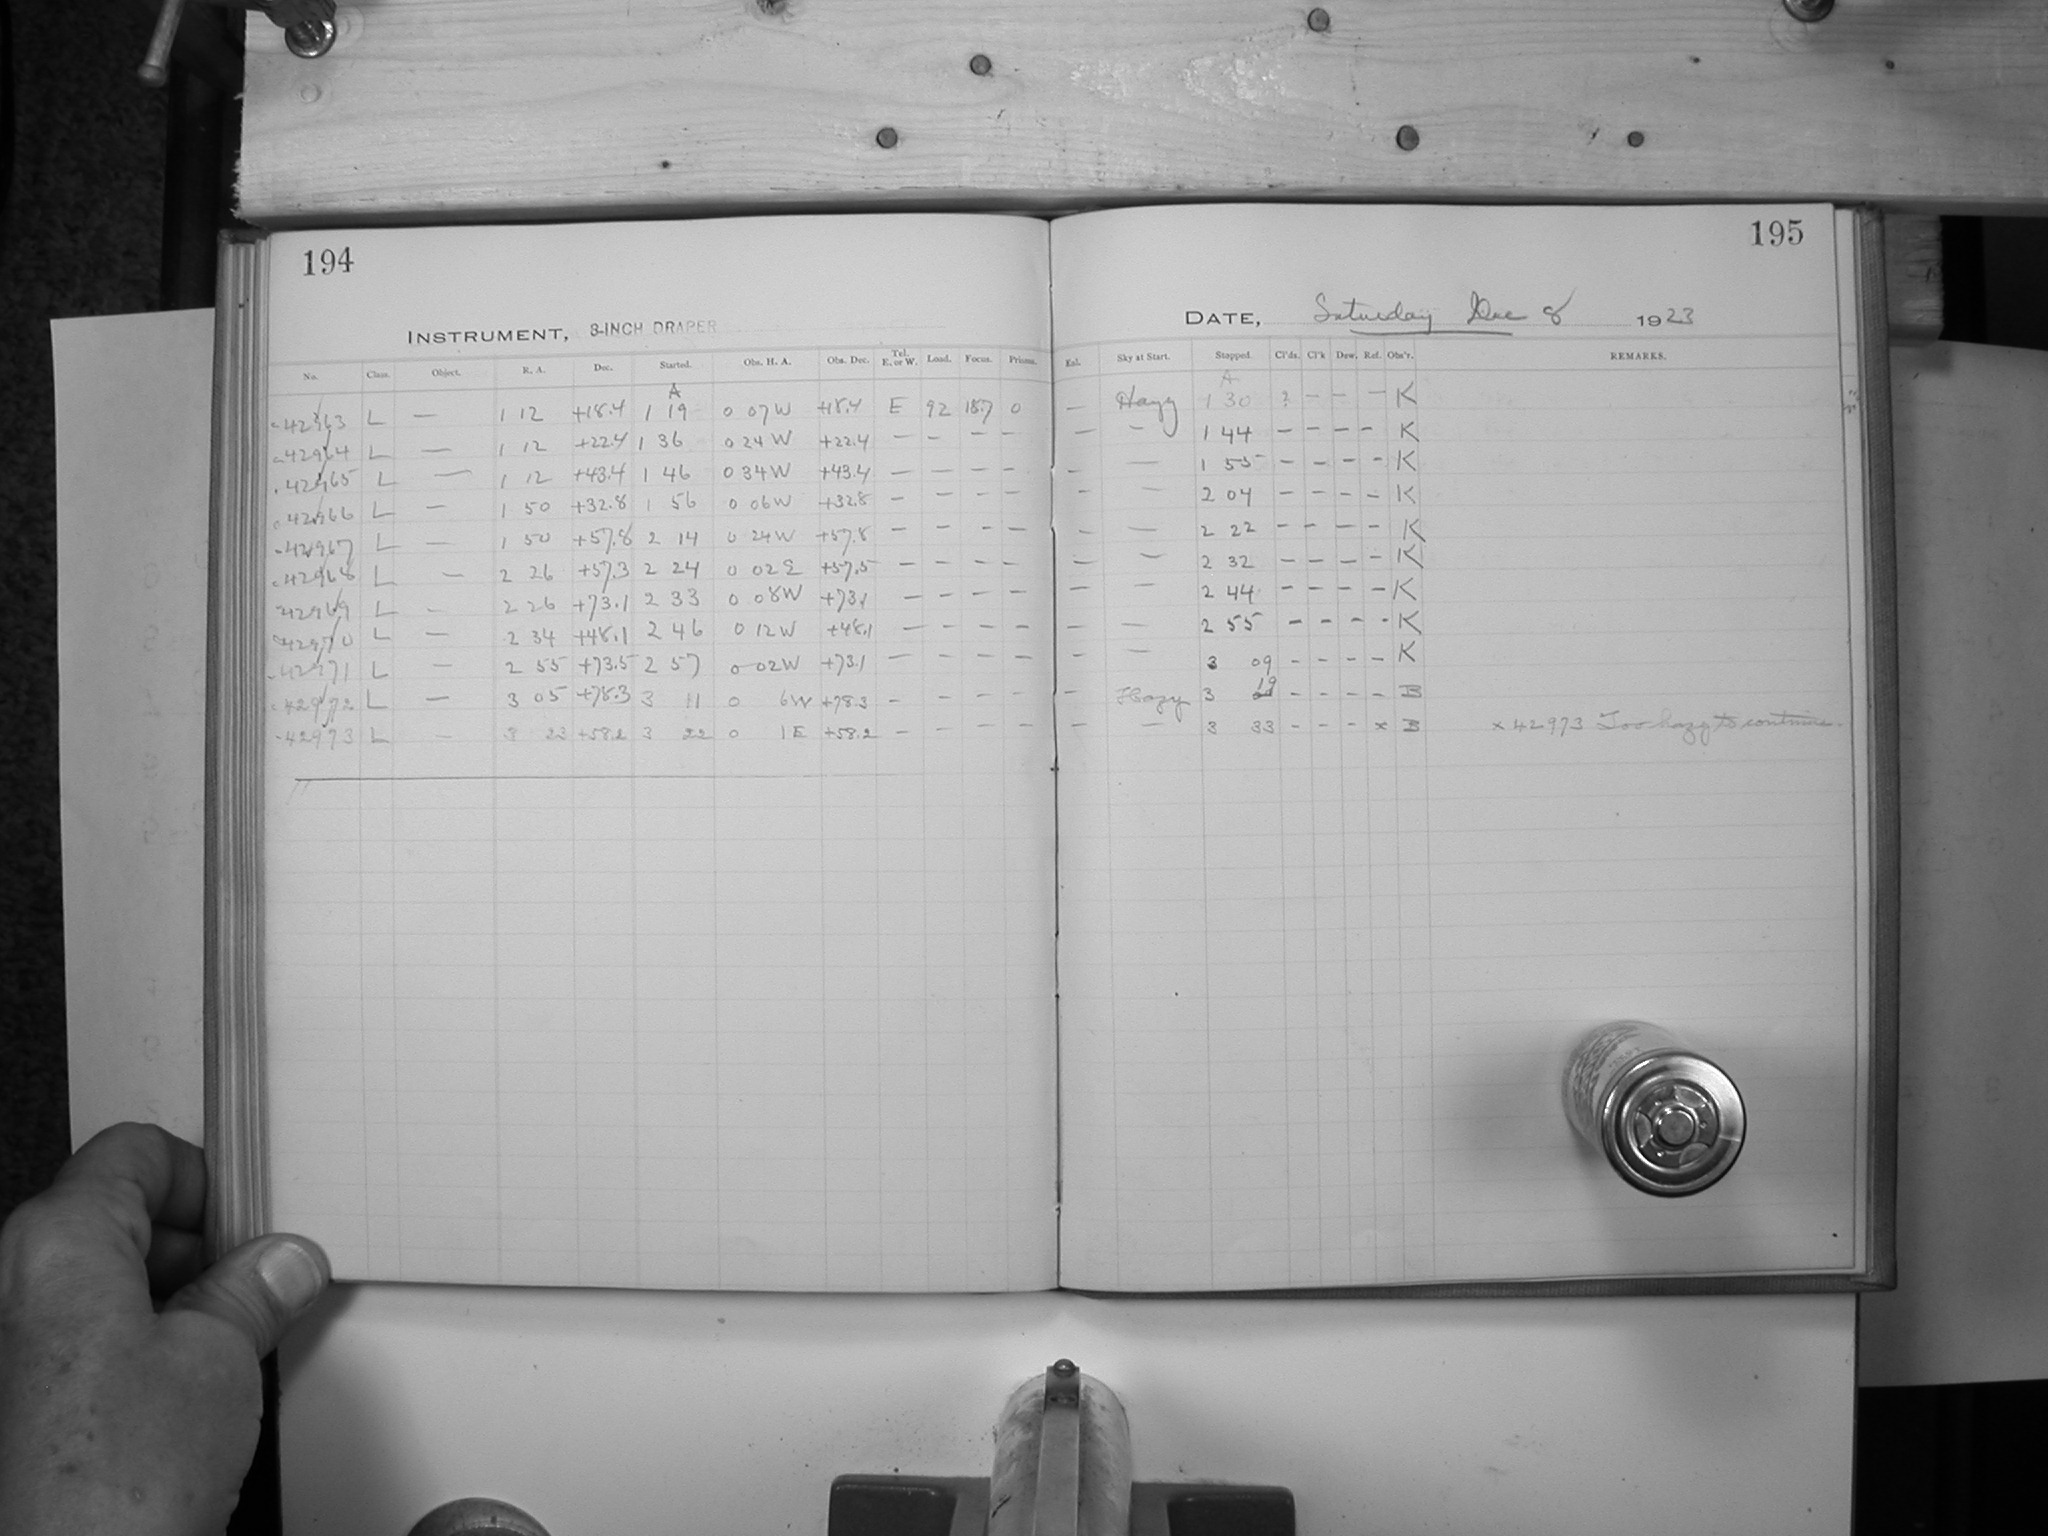 194
INSTRUMENT, 8-INCH DRAPER
No. Class. Object. R. A. Dec. Started. Obs. H. A. Obs. Dec. Tel. E. or W. Load. Focus. Prisms.
A
42963 L — 1 12 +18.4 1 19 0 07W +18.4 E 92 18.7 0
42964 L — 1 12 +22.4 1 36 0 24 W +22.4 — — — —
42965 L — 1 12 +43.4 1 46 0 34W +43.4 — — — —
42966 L — 1 50 +32.8 1 56 0 06W +32.8 — — — —
42967 L — 1 50 +57.8 2 14 0 24W +57.8 — — — —
42968 L — 2 26 +57.3 2 24 0 02 E +57.5 — — — —
42969 L — 2 26 +73.1 2 33 0 08W +73.1 — — — —
42970 L — 2 34 +48.1 2 46 0 12W +48.1 — — — —
42971 L — 2 55 +73.5 2 57 0 02W +73.1 — — — —
42972 L — 3 05 +78.3 3 11 0 6W +78.3 — — — —
42973 L — 3 23 +58.2 3 22 0 1E +58.2 — — — —
195
DATE, Saturday Dec 8 1923
Exl. Sky at Start. Stopped. Cl'ds. Cl'k Dew. Ref. Obs'r. REMARKS.
A
— Hazy 1 30 ? — — — K
— — 1 44 — — — — K
— — 1 55 — — — — K
— — 2 04 — — — — K
— — 2 22 — — — — K
— — 2 32 — — — — K
— — 2 44 — — — — K
— — 2 55 — — — — K
— — 3 09 — — — — K
— Hazy 3 19 — — — — B
— — 3 33 — — — x B x 42973 Too hazy to continue.